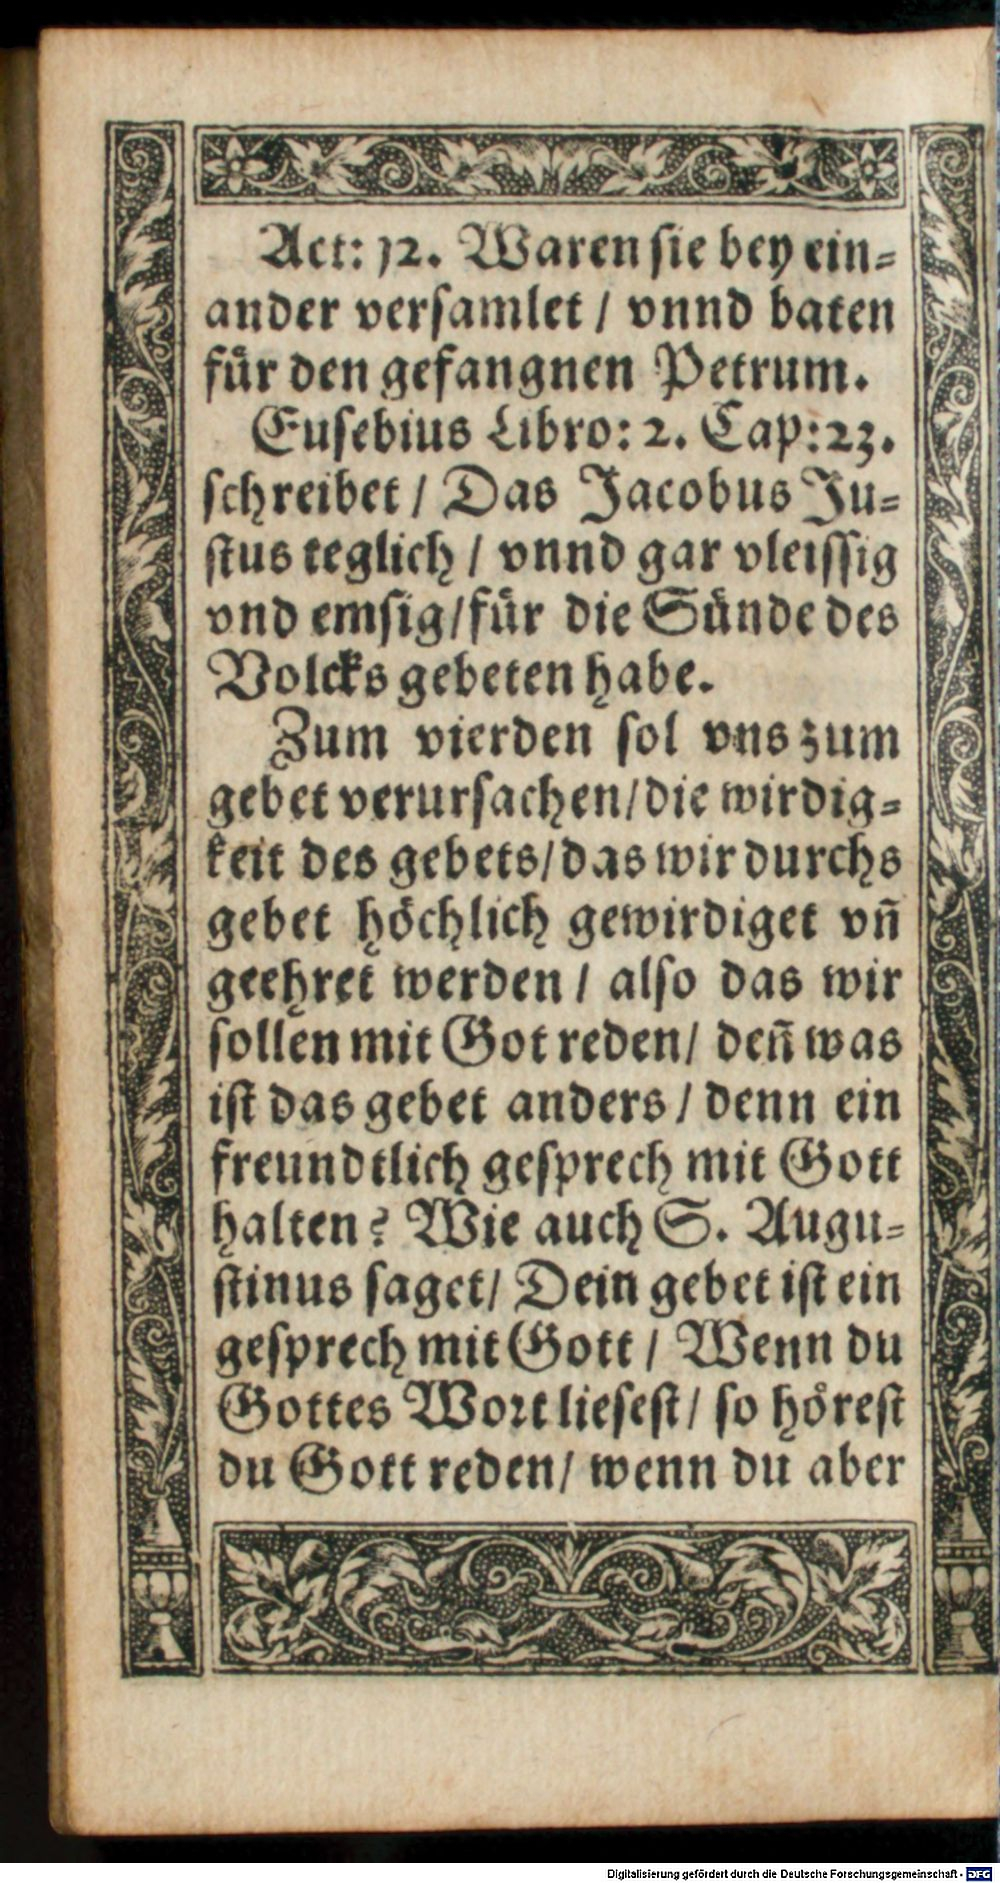 Act: 12. Waren sie bey ein-
ander versamlet / vnnd baten
für den gefangnen Petrum.
Eusebius Libro: 2. Cap: 23.
schreibet / Das Jacobus Ju-
stus teglich / vnnd gar vleissig
vnd emsig / für die Sünde des
Volcks gebeten habe.
Zum vierden sol vns zum
gebet verursachen / die wirdig-
keit des gebets / das wir durchs
gebet höchlich gewirdiget vn̄
geehret werden / also das wir
sollen mit Got reden / den̄ was
ist das gebet anders / denn ein
freundtlich gesprech mit Gott
halten? Wie auch S. Augu-
stinus saget / Dein gebet ist ein
gesprech mit Gott / Wenn du
Gottes Wort liesest / so hörest
du Gott reden / wenn du aber
Digitalisierung gefördert durch die Deutsche Forschungsgemeinschaft - DFG